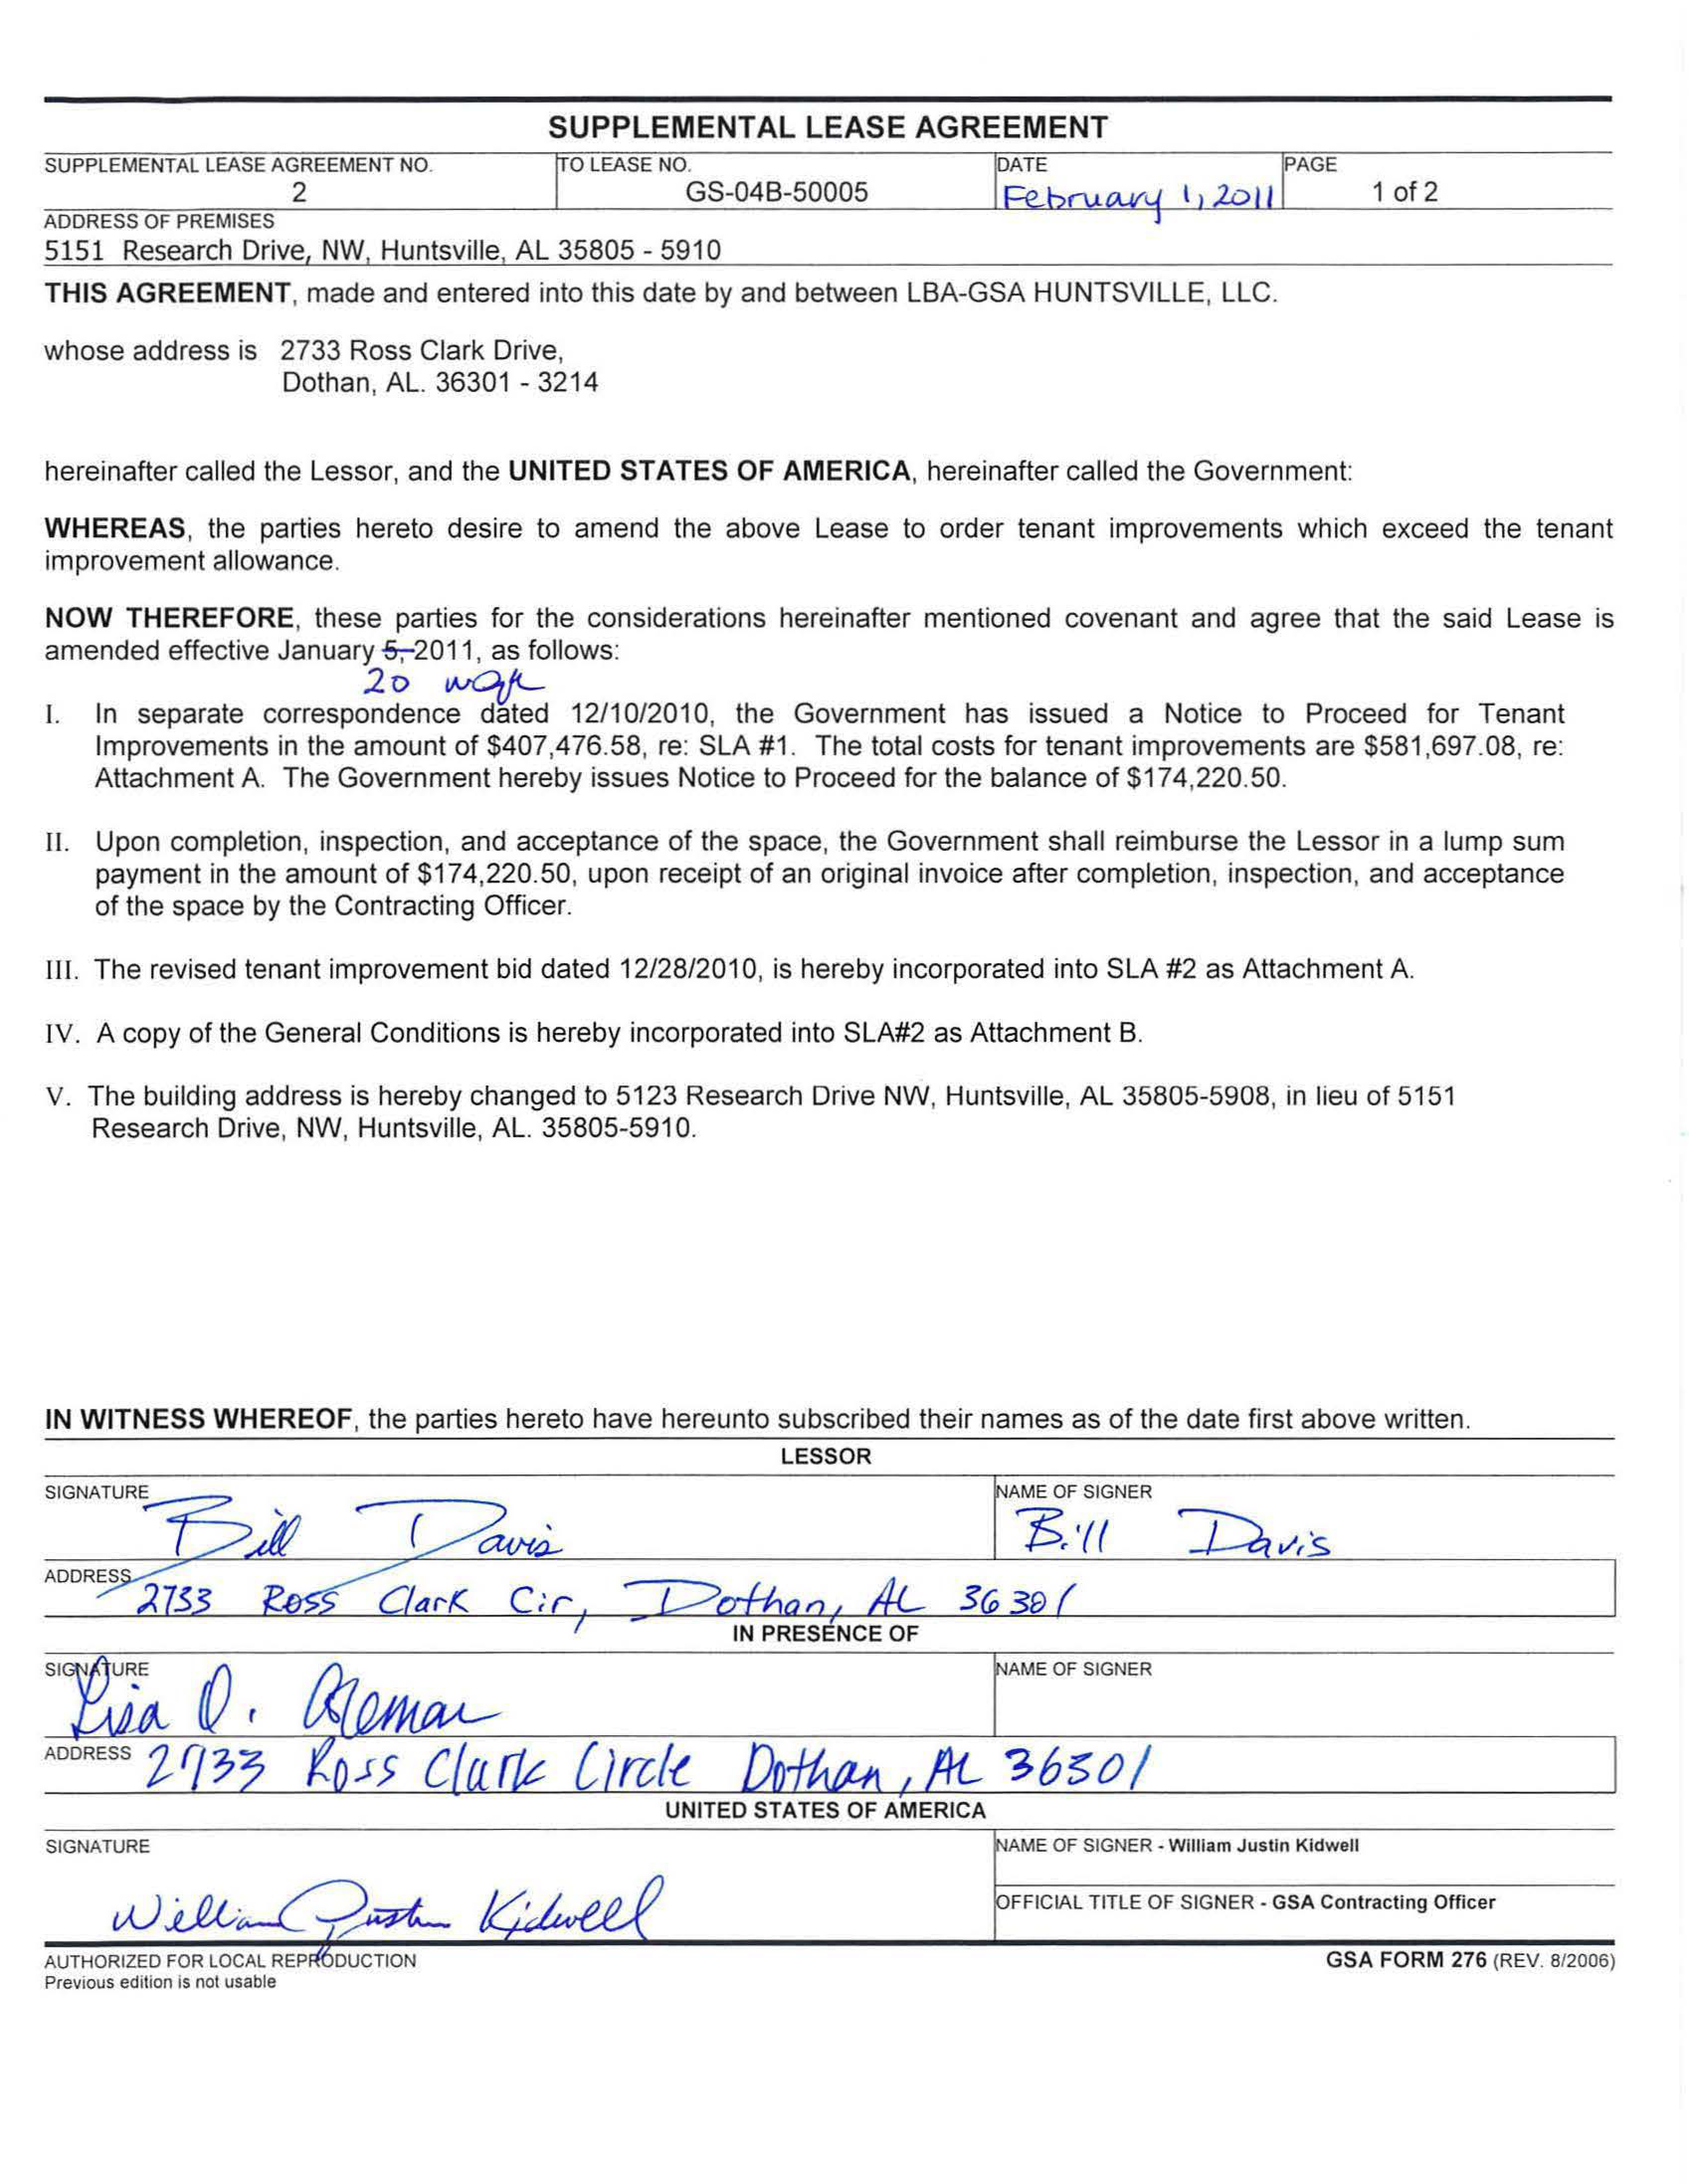 SUPPLEMENTAL LEASE AGREEMENT
SUPPLEMENTAL LEASE AGREEMENT NO. TO LEASE NO. DATE PAGE
2 GS-04B-50005 February 1, 2011 1 of 2
ADDRESS OF PREMISES
5151 Research Drive, NW, Huntsville, AL 35805 - 5910
THIS AGREEMENT, made and entered into this date by and between LBA-GSA HUNTSVILLE, LLC.
whose address is 2733 Ross Clark Drive,
Dothan, AL. 36301 - 3214
hereinafter called the Lessor, and the UNITED STATES OF AMERICA, hereinafter called the Government:
WHEREAS, the parties hereto desire to amend the above Lease to order tenant improvements which exceed the tenant
improvement allowance.
NOW THEREFORE, these parties for the considerations hereinafter mentioned covenant and agree that the said Lease is
amended effective January 5, 2011, as follows:
20
I. In separate correspondence dated 12/10/2010, the Government has issued a Notice to Proceed for Tenant
Improvements in the amount of $407,476.58, re: SLA #1. The total costs for tenant improvements are $581,697.08, re:
Attachment A. The Government hereby issues Notice to Proceed for the balance of $174,220.50.
II. Upon completion, inspection, and acceptance of the space, the Government shall reimburse the Lessor in a lump sum
payment in the amount of $174,220.50, upon receipt of an original invoice after completion, inspection, and acceptance
of the space by the Contracting Officer.
III. The revised tenant improvement bid dated 12/28/2010, is hereby incorporated into SLA #2 as Attachment A.
IV. A copy of the General Conditions is hereby incorporated into SLA#2 as Attachment B.
V. The building address is hereby changed to 5123 Research Drive NW, Huntsville, AL 35805-5908, in lieu of 5151
Research Drive, NW, Huntsville, AL. 35805-5910.
IN WITNESS WHEREOF, the parties hereto have hereunto subscribed their names as of the date first above written.
LESSOR
SIGNATURE NAME OF SIGNER
Bill Davis Bill Davis
ADDRESS
2733 Ross Clark Cir, Dothan, AL 36301
IN PRESENCE OF
SIGNATURE NAME OF SIGNER
Lisa O.
ADDRESS 2733 Ross Clark Circle Dothan, AL 36301
UNITED STATES OF AMERICA
SIGNATURE NAME OF SIGNER - William Justin Kidwell
William Justin Kidwell OFFICIAL TITLE OF SIGNER - GSA Contracting Officer
AUTHORIZED FOR LOCAL REPRODUCTION GSA FORM 276 (REV. 8/2006)
Previous edition is not usable